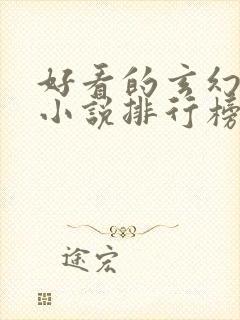 好看的玄幻
小说排行榜
途宏